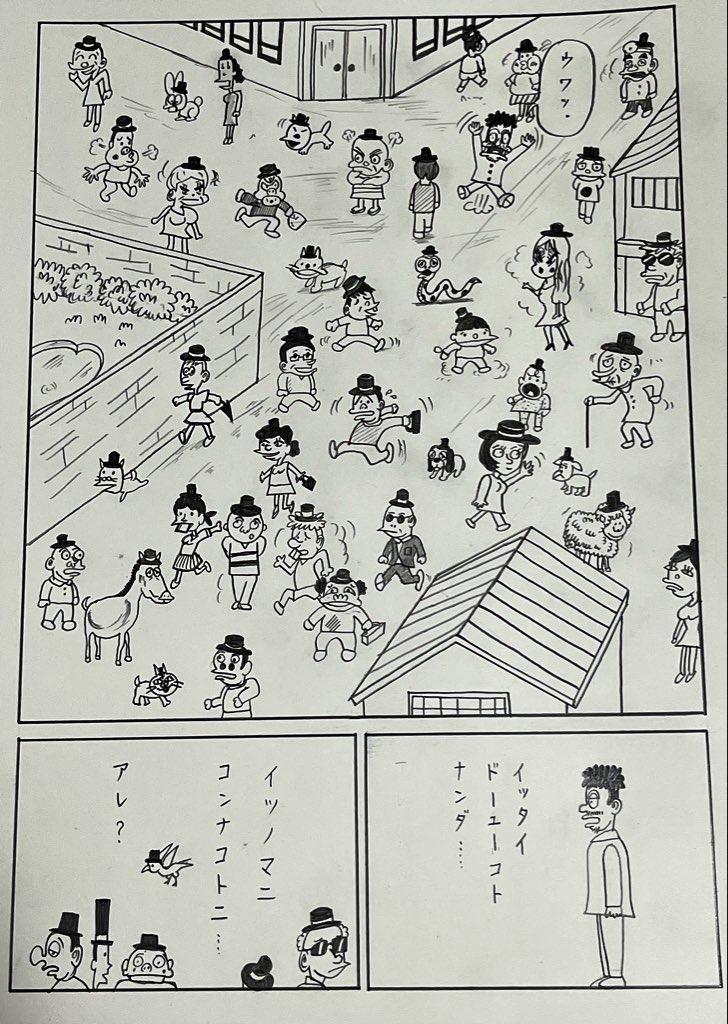 ウワッ.
イッタイ
ドーユーコト
ナンダ……
イツノマニ
コンナコトニ…
アレ?